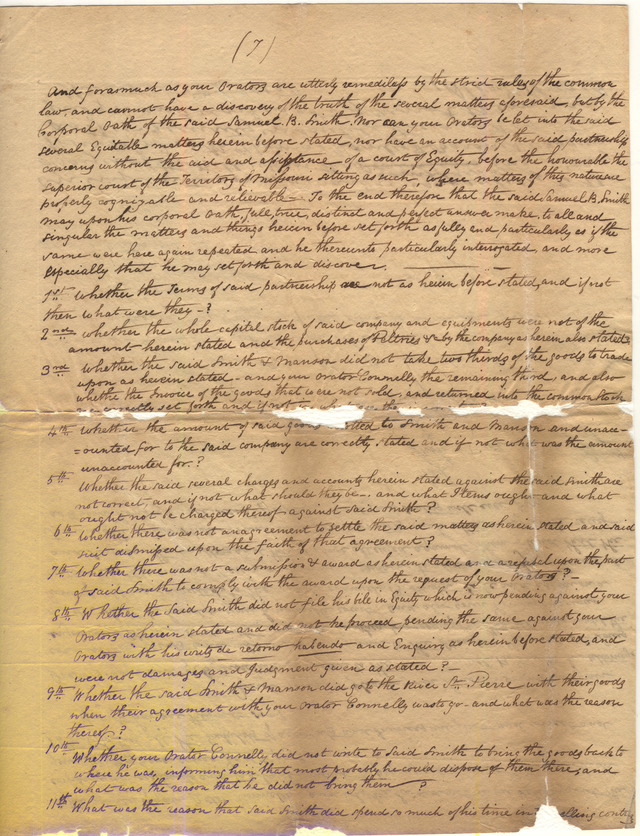 (7)
And forasmuch as your Orators are utterly remediless by the strict rules of the common
law, and cannot have a discovery of the truth of the several matters aforesaid, but by the
Corporal Oath of the said Samuel B. Smith. Nor can your Orators be let into the said
several Equitable matters herein before stated, nor have an account of the said partnership
concerns without the aid and assistance of a court of Equity, before the honourable the
Superior court of the Territory of Missouri sitting as such, where matters of this nature are
properly cognizable and relievable — To the end therefore that the said Samuel B. Smith
may upon his corporal Oath, full, true, distinct and perfect answer make, to all and
singular the matters and things herein before set forth as fully and particularly as if the
same were here again repeated and he thereunto particularly interrogated, and more
especially that he may set forth and discover.
1st Whether the Terms of said partnership are not as herein before stated, and if not
then what were they — ?
2nd Whether the whole capital stock of said company and equipments were not of the
amount herein stated and the purchases of Peltries &c by the company as herein also stated?
3rd Whether the said Smith & Manson did not take two thirds of the goods to trade
upon as herein stated — and your Orator Connelly the remaining third, and also
whether the Invoice of the goods that were not sold, and returned into the common stock
correctly set forth and if not
4th Whether the amount of said goods to Smith and Manson and unacc-
=ounted for to the said company are correctly stated and if not what was the amount
unaccounted for. ?
5th Whether the said several charges and accounts herein stated against the said Smith are
not correct, and if not what should they be — and what Items ought and what
ought not be charged thereof against said Smith ?
6th Whether there was not an agreement to settle the said matters as herein stated and said
suit dismissed upon the faith of that agreement ?
7th Whether there was not a submission & award as herein stated and a refusal upon the part
of said Smith to comply with the award upon the request of your Orators ? —
8th Whether the said Smith did not file his bill in Equity which is now pending against your
Orators as herein stated and did not he proceed, pending the same against your
Orators with his writs de retorno habendo and Enquiry as herein before stated, and
were not damages and Judgment given as stated ? —
9th Whether the said Smith & Manson did go to the River St. Pierre with their goods
when their agreement with your Orator Connelly was to go — and what was the reason
thereof ?
10th Whether your Orator Connelly did not write to said Smith to bring the goods back to
where he was, informing him that most probably he could dispose of them there, and
what was the reason that he did not bring them ?
11th What was the reason that said Smith did spend so much of his time in